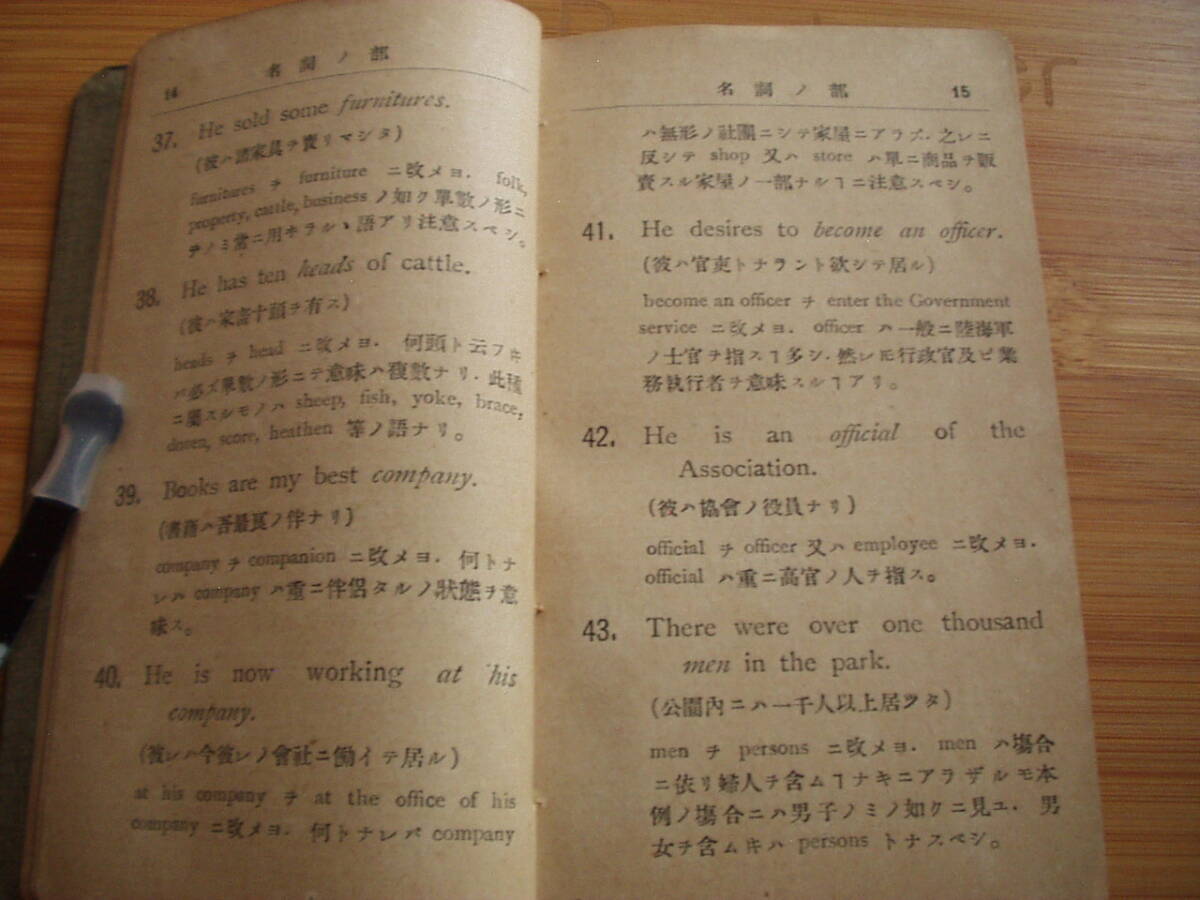 14 名詞ノ部
37. He sold some furnitures.
(彼ハ諸家具ヲ賣リマシタ)
furnitures ヲ furniture ニ改メヨ. folk,
property, cattle, business ノ如ク單數ノ形ニ
テノミ常ニ用ヰラルヽ語アリ注意スベシ。
38. He has ten heads of cattle.
(彼ハ家畜十頭ヲ有ス)
heads ヲ head ニ改メヨ. 何頭ト云フキ
ハ必ズ單數ノ形ニテ意味ハ複數ナリ. 此種
ニ屬スルモノハ sheep, fish, yoke, brace,
dozen, score, heathen 等ノ語ナリ。
39. Books are my best company.
(書籍ハ吾最良ノ伴ナリ)
company ヲ companion ニ改メヨ. 何トナ
レバ company ハ重ニ伴侶タルノ狀態ヲ意
味ス。
40. He is now working at his
company.
(彼レハ今彼レノ會社ニ働イテ居ル)
at his company ヲ at the office of his
company ニ改メヨ. 何トナレバ company
名詞ノ部 15
ハ無形ノ社團ニシテ家屋ニアラズ. 之レニ
反シテ shop 又ハ store ハ單ニ商品ヲ販
賣スル家屋ノ一部ナルヿニ注意スベシ。
41. He desires to become an officer.
(彼ハ官吏トナラント欲シテ居ル)
become an officer ヲ enter the Government
service ニ改メヨ. officer ハ一般ニ陸海軍
ノ士官ヲ指スヿ多シ. 然レ𪜈行政官及ビ業
務執行者ヲ意味スルヿアリ。
42. He is an official of the
Association.
(彼ハ協會ノ役員ナリ)
official ヲ officer 又ハ employee ニ改メヨ.
official ハ重ニ高官ノ人ヲ指ス。
43. There were over one thousand
men in the park.
(公園內ニハ一千人以上居ッタ)
men ヲ persons ニ改メヨ. men ハ塲合
ニ依リ婦人ヲ含ムヿナキニアラザルモ本
例ノ塲合ニハ男子ノミノ如クニ見ユ. 男
女ヲ含ムキハ persons トナスベシ。